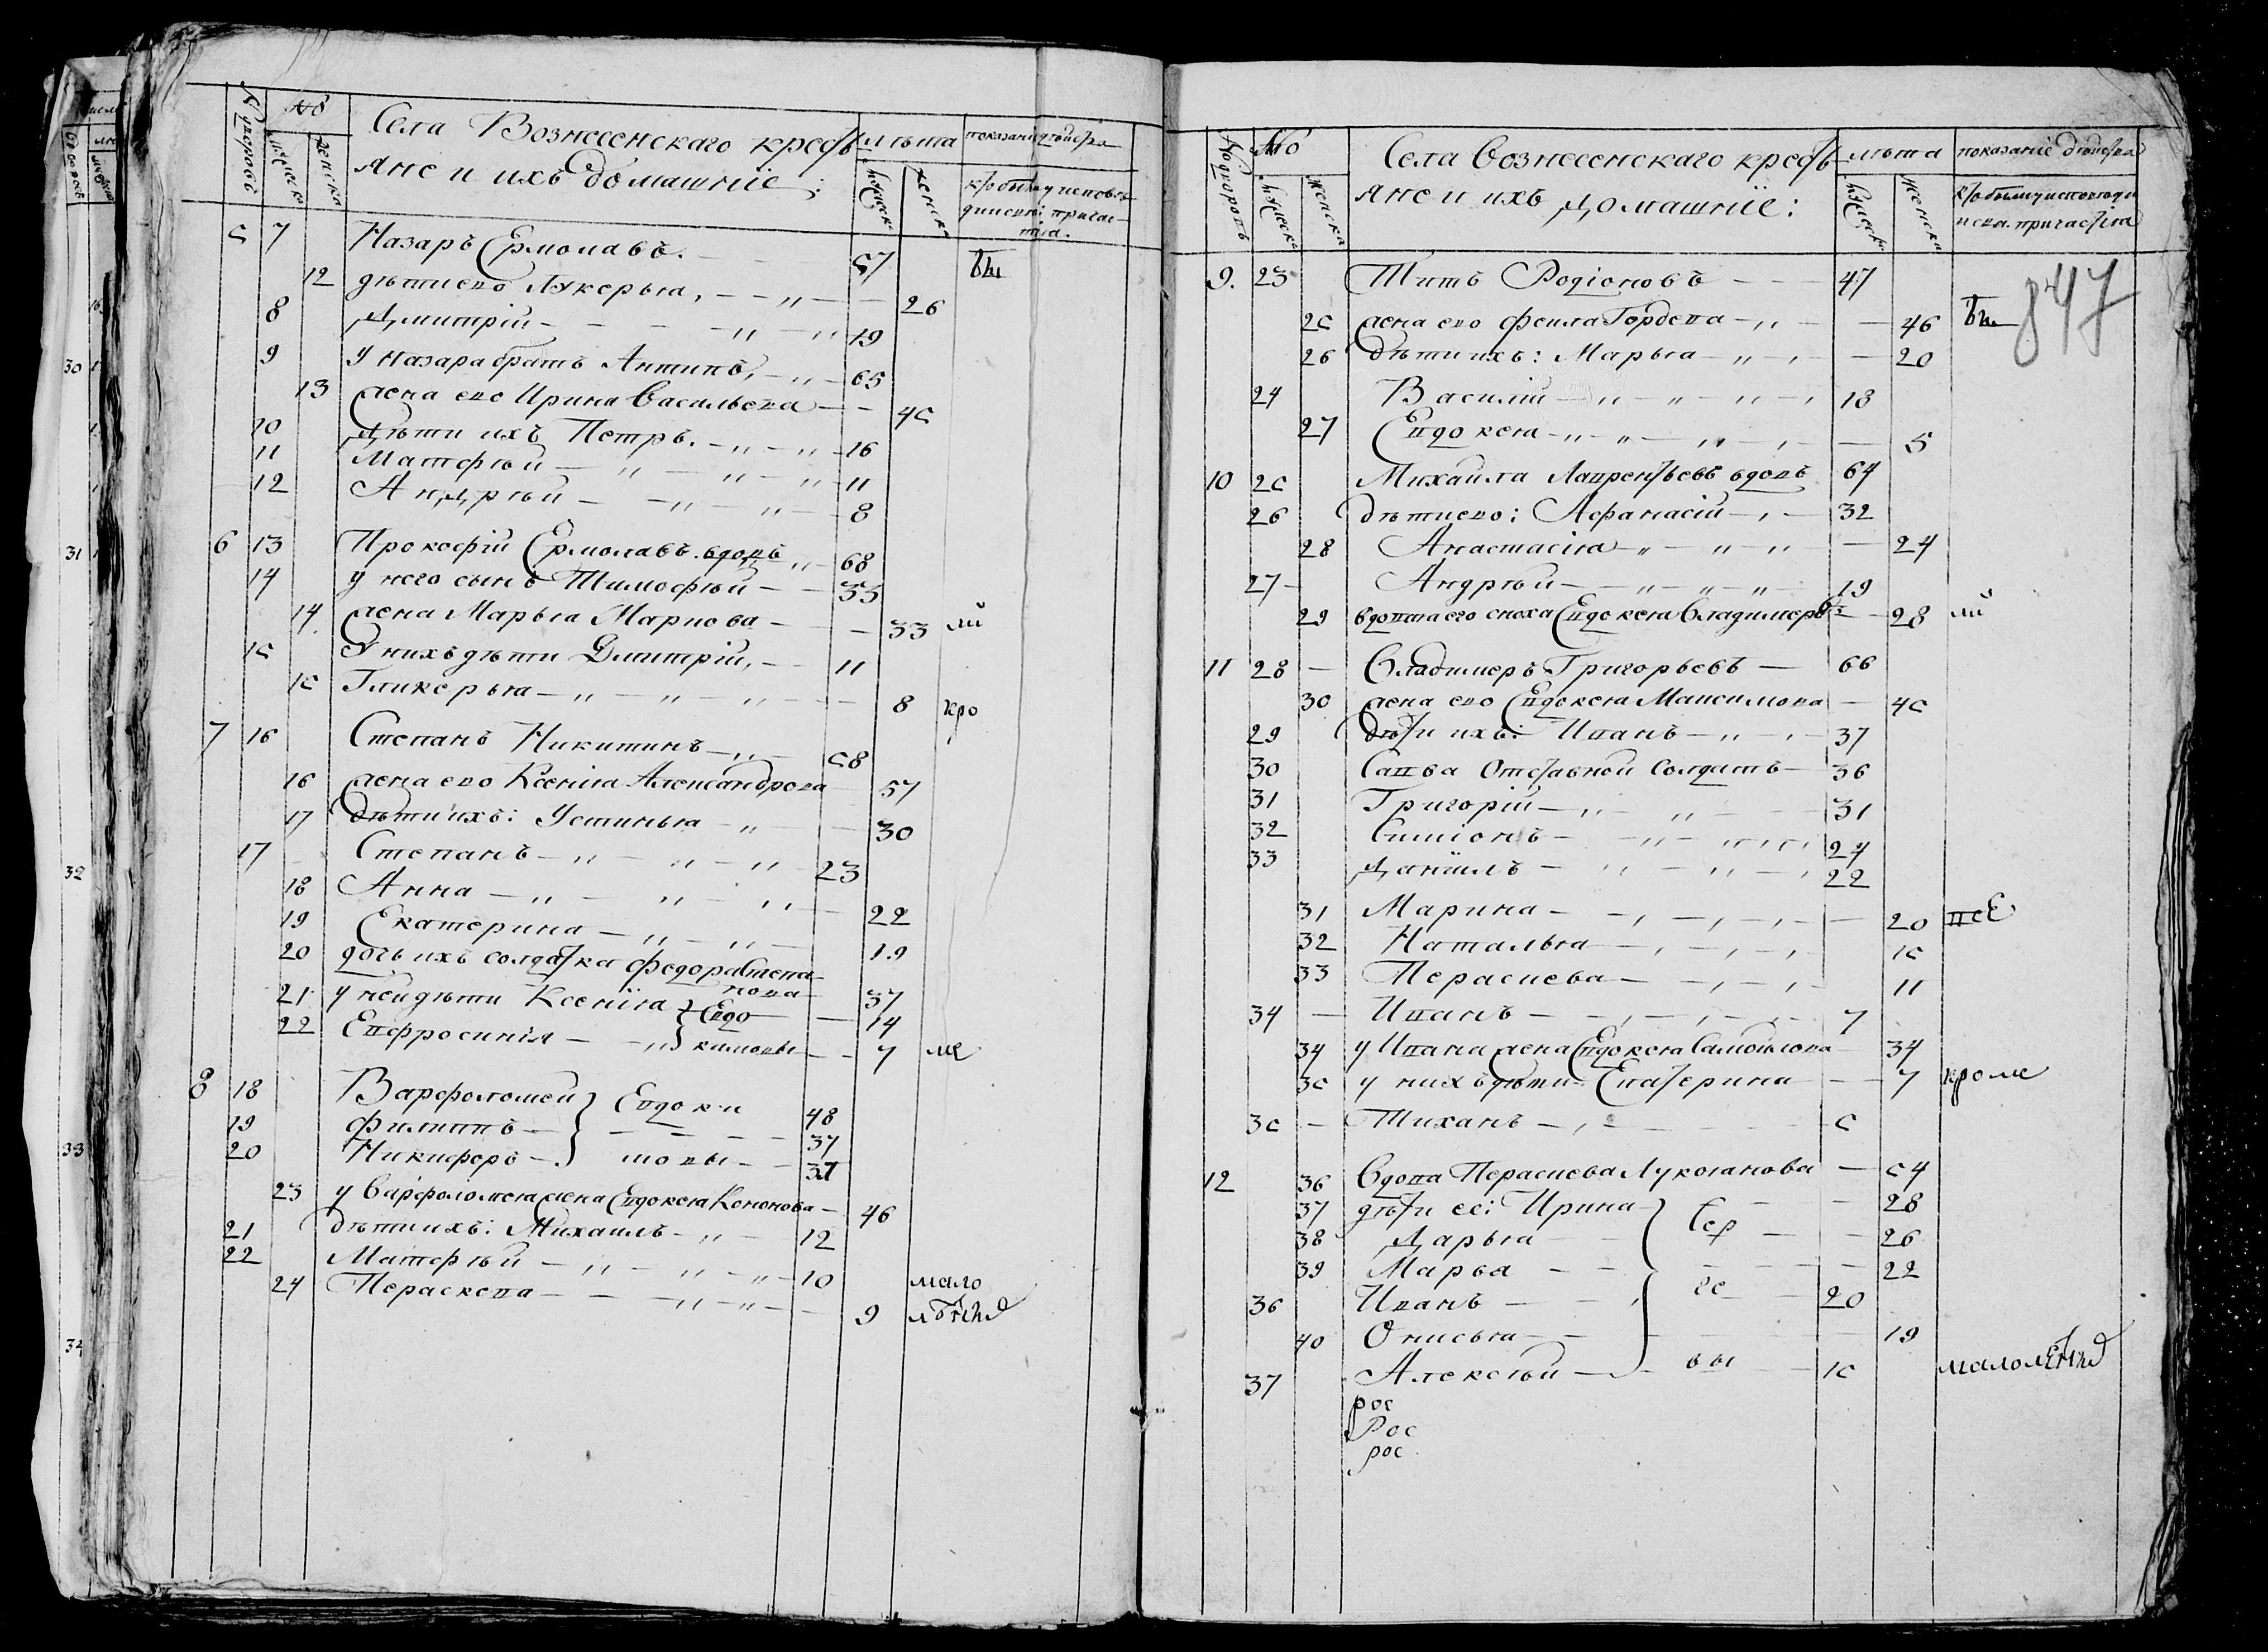 №
Села Вознесенскаго кресть
лѣта
показаніе действа
яне и ихъ домашніе:
мужеска
женска
мужеска
женска
кто былъ у исповѣ
ди и св: причас-
тія.
5 7 Назаръ Ермолавъ. 57 бы
12 дѣти ево Лукерья, 26
8 Дмитрій 19
9 У назара братъ Антипъ, 65
13 жена ево Ирина Васильева 45
10 Дѣти ихъ Петръ. 16
11 Матфѣй 11
12 Андрѣй 8
6 13 Прокофій Ермолавъ. вдовъ 68
14 у него сынъ Тимофѣй 33
14 жена Марья Маркова 33 ли
15 У нихъ дѣти Дмитрій, 11
15 Гликерья 8 кро
7 16 Степанъ Никитинъ 58
16 жена ево Ксенія Александрова 57
17 дѣти ихъ: Устинья 30
17 Степанъ 23
18 Анна 22
19 Екатерина 19
20 дочь ихъ солдатка Федора Степа
нова 37
21 у ней дѣти Ксенія } Евдо 14
22 Евфросинія } кимовы 7 ме
8 18 Варфоломей } Евдоки 48
19 Филиппъ 37
20 Никифоръ } мовы 37
23 у Варфоломея жена Евдокея Кононова 46
21 дѣти ихъ: Михаилъ 12
22 Матфѣй 10 мало
24 Пераскева 9 лѣтнѣ
30
31
32
33
34
№
Села Вознесенскаго кресть
лѣта
показаніе действа
яне и ихъ домашніе:
мужеска
женска
мужеска
женска
кто былъ у исповѣди
и свя. причастія
9. 23 Титъ Родіоновъ 47
847
25 жена ево Феила Гордева 46 бы
26 дѣти ихъ: Марья 20
24 Василій 18
27 Евдокея 5
10 25 Михаила Лаврентьевъ вдовъ 64
26 дѣти ево: Афанасій 32
28 Анастасія 24
27 Андрѣй 19
29 вдовая его сноха Евдокея Владимеро 28 ли
11 28 Владимеръ Григорьевъ 66
30 жена ево Евдокея Максимова 45
29 дѣти ихъ: Иванъ 37
30 Савва Отставной Солдатъ 36
31 Григорій 31
32 Симіонъ 24
33 Даніилъ 22
31 Марина 20 всѣ
32 Наталья 15
33 Пераскева 11
34 Иванъ 7
34 у Ивана жена Евдокея Самойлова 34
35 у нихъ дѣти Екатерина 7 кроме
35 Тиханъ 5
12 36 Вдова Пераскева Лукоянова 54
37 дѣти ее: Ирина } Сер 28
38 Дарья 26
39 Марья 22
36 Иванъ ге 20
40 Онисья 19
37 Алексѣй вы 15 малолѣтнѣ
рос
Рос
рос